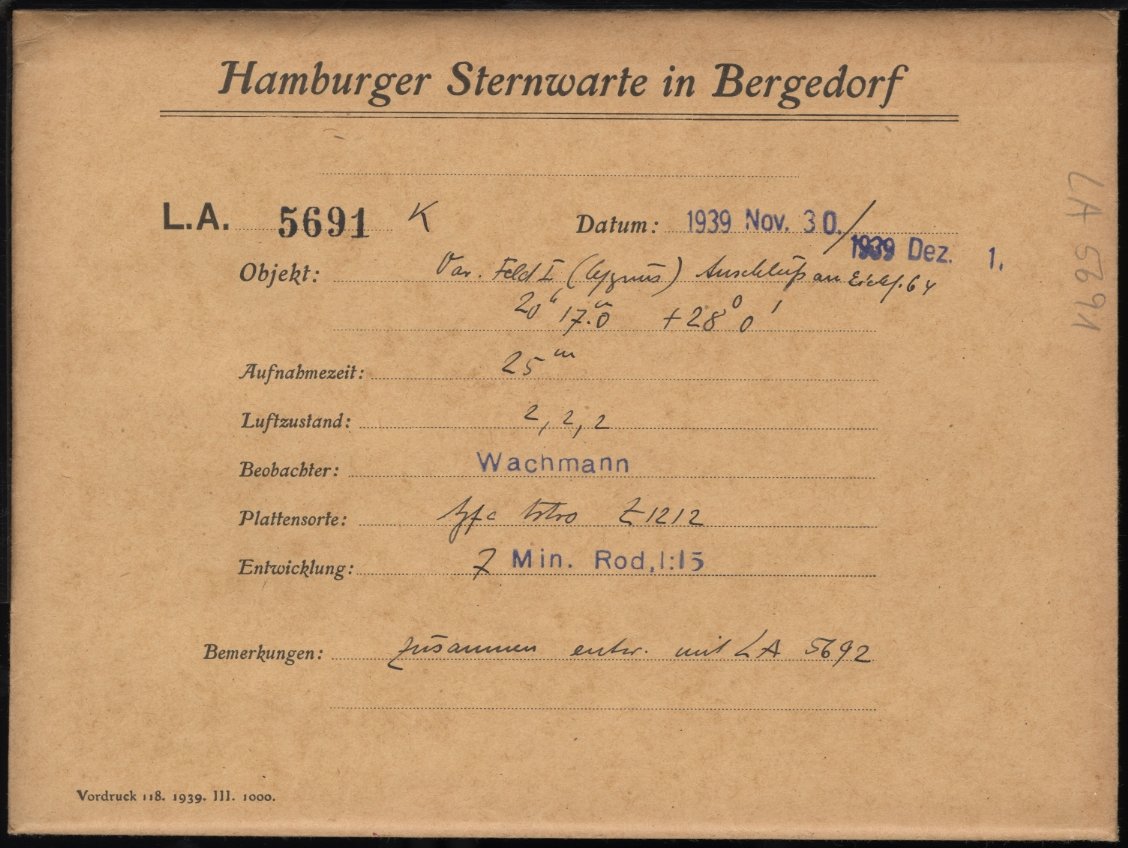 Hamburger Sternwarte in Bergedorf
L.A. 5691 K
Datum: 1939 Nov. 30./1939 Dez. 1.
Objekt: Var. Feld I (Cygnus) Anschluß an 64
20h 17m.0 +28° 0'
Aufnahmezeit: 25m
Luftzustand: 2, 2, 2
Beobachter: Wachmann
Plattensorte: Z1212
Entwicklung: 7 Min. Rod,1:15
Bemerkungen: zusammen entw. mit LA 5692
Vordruck 118. 1939. III. 1000.
LA 5691